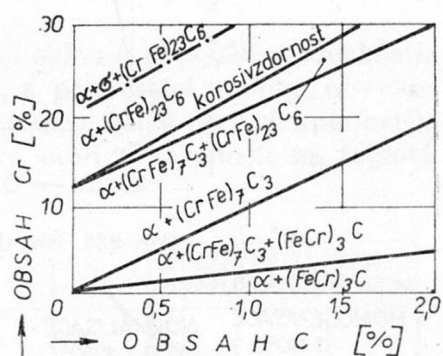 30
20
10
0
OBSAH Cr [%]
α+σ+(Cr Fe)23C6
α+(CrFe)23C6 korosivzdornost
α+(CrFe)7C3+(CrFe)23C6
α+(CrFe)7C3
α+(CrFe)7C3+(FeCr)3C
α+(FeCr)3C
0,5
1,0
1,5
2,0
OBSAH C [%]